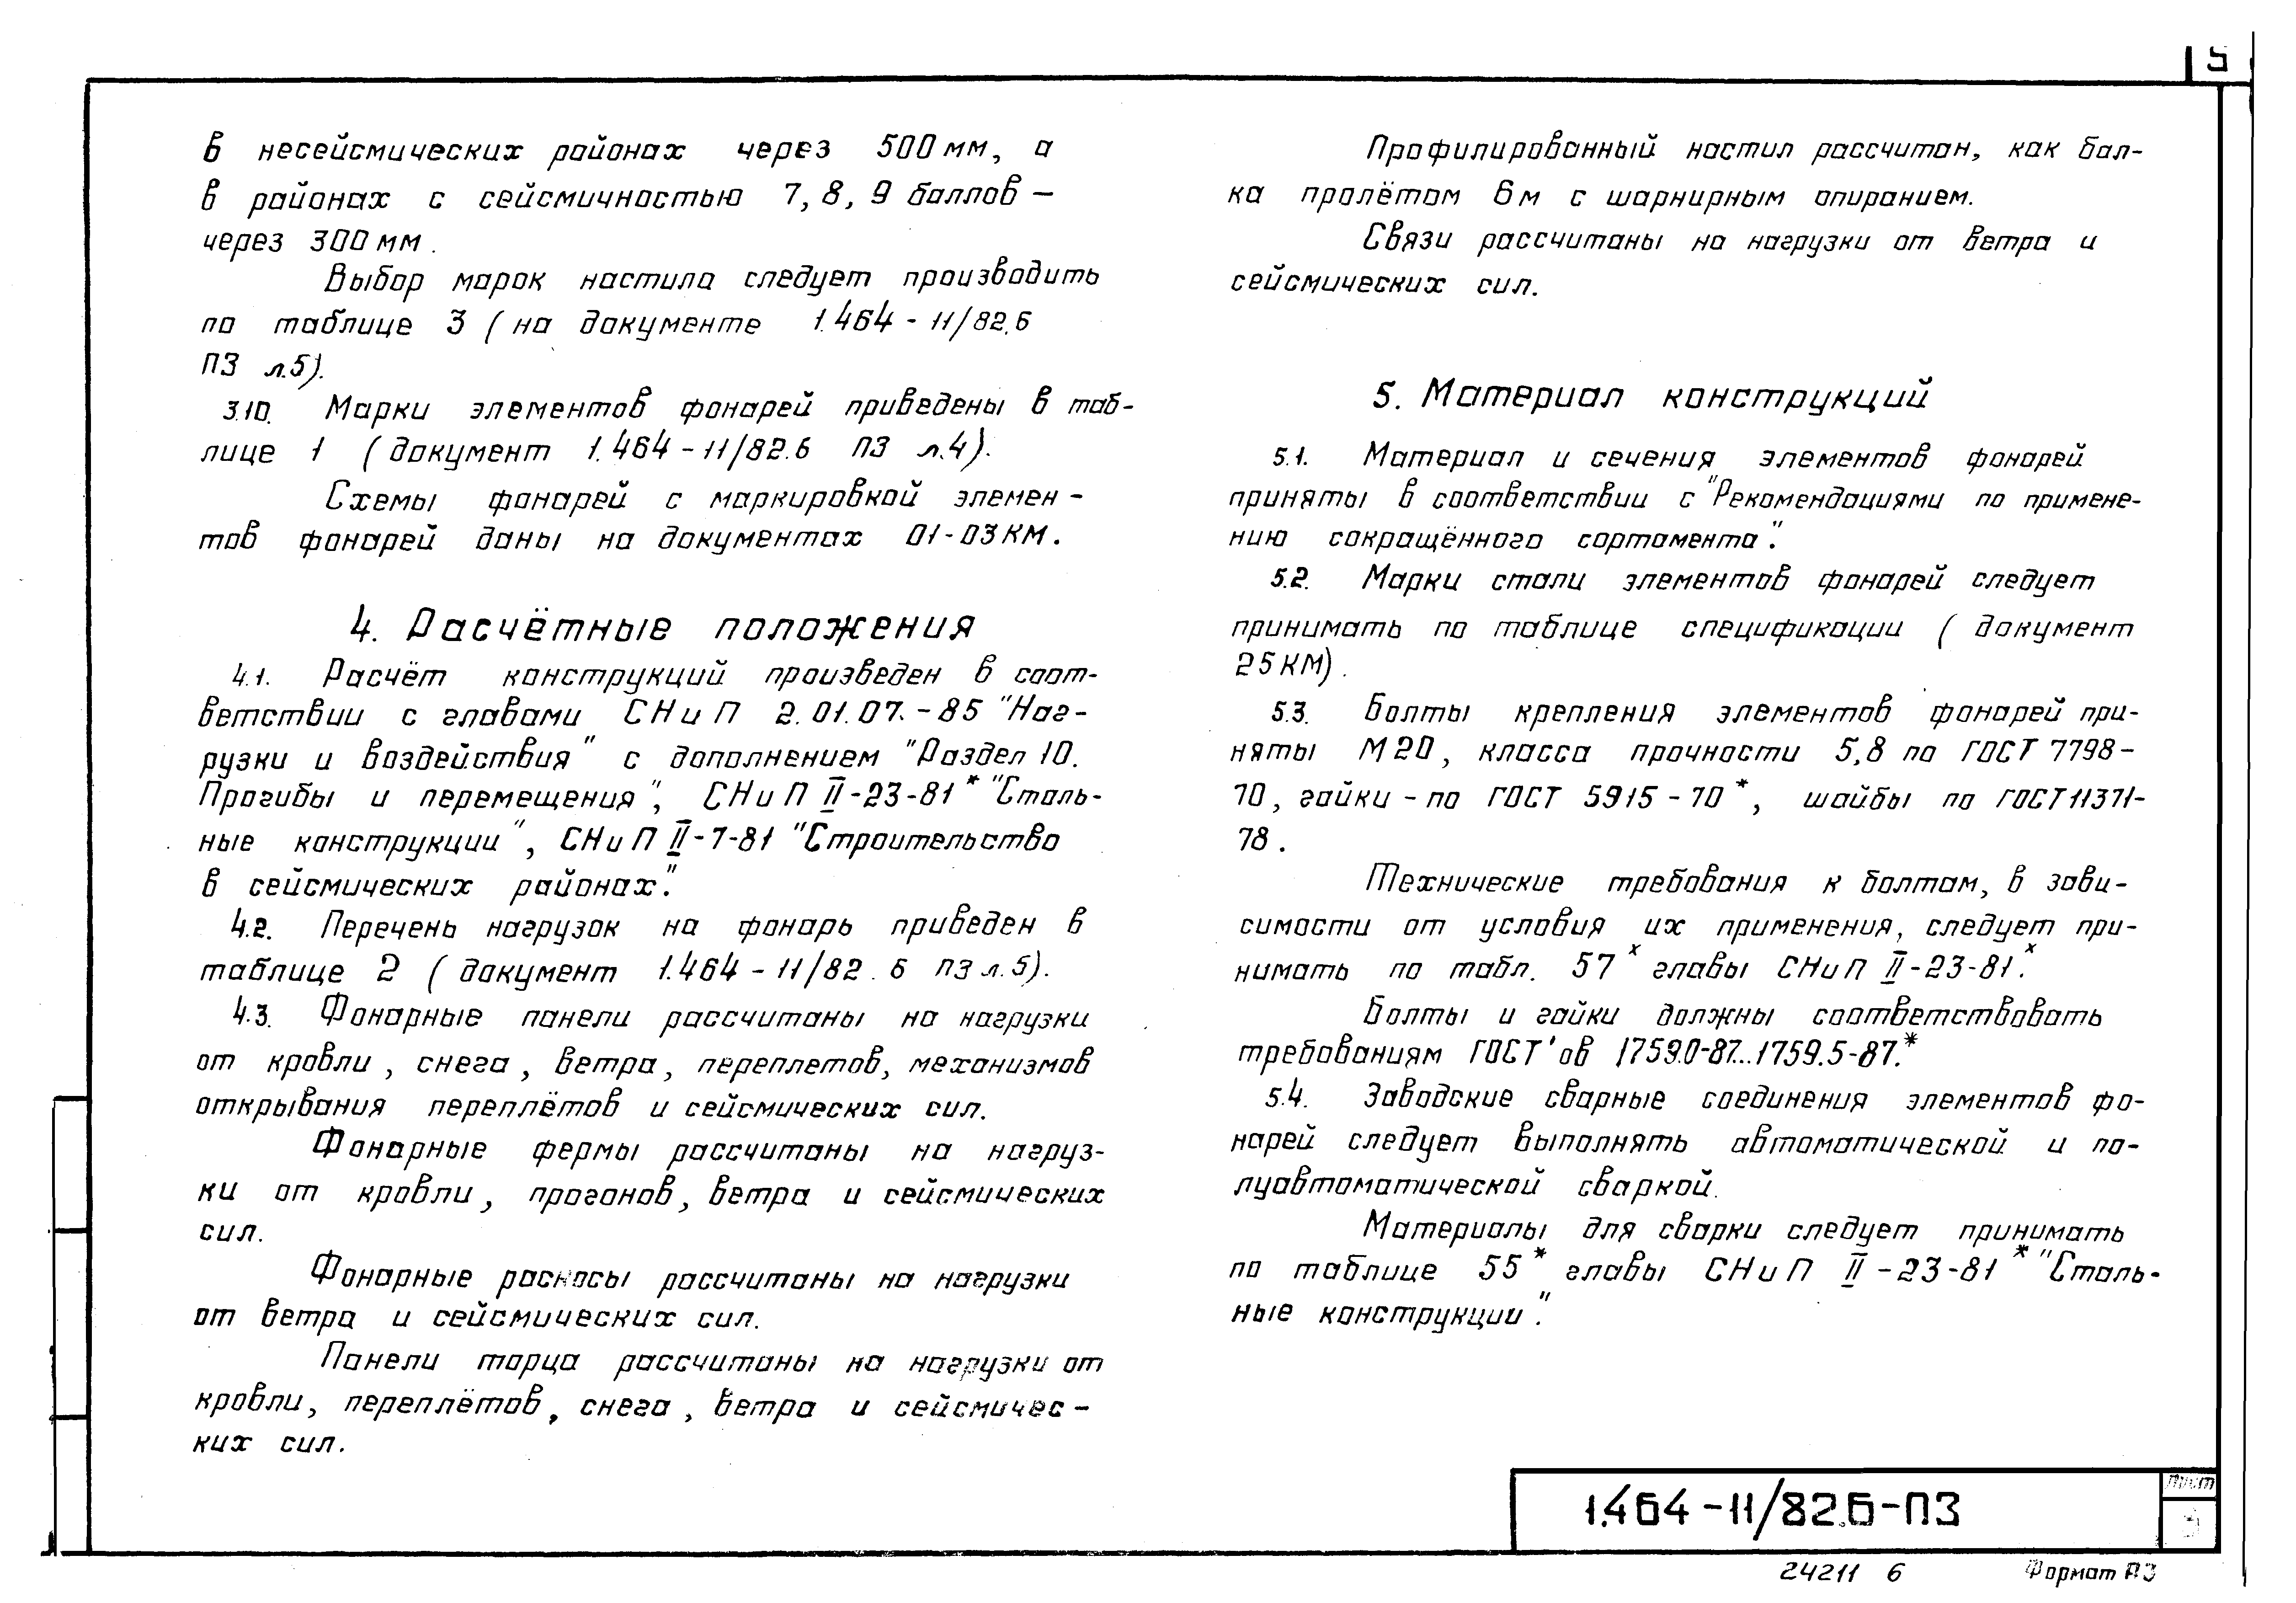 5
в несейсмических районах через 500 мм, а
в районах с сейсмичностью 7, 8, 9 баллов –
через 300 мм.
Выбор марок настила следует производить
по таблице 3 (на документе 1.464-11/82.6
ПЗ л.5).
3.10. Марки элементов фонарей приведены в таб-
лице 1 (документ 1.464-11/82.6 ПЗ л.4).
Схемы фонарей с маркировкой элемен-
тов фонарей даны на документах 01-03КМ.
4. Расчётные положения
4.1. Расчёт конструкций произведен в соот-
ветствии с главами СНиП 2.01.07.-85 "Наг-
рузки и воздействия" с дополнением "Раздел 10.
Прогибы и перемещения", СНиП II-23-81* "Сталь-
ные конструкции", СНиП II-7-81 "Строительство
в сейсмических районах".
4.2. Перечень нагрузок на фонарь приведен в
таблице 2 (документ 1.464-11/82.6 ПЗ л.5).
4.3. Фонарные панели рассчитаны на нагрузки
от кровли, снега, ветра, переплетов, механизмов
открывания переплётов и сейсмических сил.
Фонарные фермы рассчитаны на нагруз-
ки от кровли, прогонов, ветра и сейсмических
сил.
Фонарные раскосы рассчитаны на нагрузки
от ветра и сейсмических сил.
Панели торца рассчитаны на нагрузки от
кровли, переплётов, снега, ветра и сейсмичес-
ких сил.
Профилированный настил рассчитан, как бал-
ка пролётом 6м с шарнирным опиранием.
Связи рассчитаны на нагрузки от ветра и
сейсмических сил.
5. Материал конструкций
5.1. Материал и сечения элементов фонарей
приняты в соответствии с "Рекомендациями по примене-
нию сокращённого сортамента".
5.2. Марки стали элементов фонарей следует
принимать по таблице спецификации (документ
25КМ).
5.3. Болты крепления элементов фонарей при-
няты М20, класса прочности 5,8 по ГОСТ 7798-
70, гайки - по ГОСТ 5915-70*, шайбы по ГОСТ 11371-
78.
Технические требования к болтам, в зави-
симости от условия их применения, следует при-
нимать по табл. 57* главы СНиП II-23-81*.
Болты и гайки должны соответствовать
требованиям ГОСТ'ов 1759.0-87...1759.5-87.*
5.4. Заводские сварные соединения элементов фо-
нарей следует выполнять автоматической и по-
луавтоматической сваркой.
Материалы для сварки следует принимать
по таблице 55* главы СНиП II-23-81* "Сталь-
ные конструкции".
1.464-11/82.6-ПЗ
Лист
3
24211 6
Формат А3